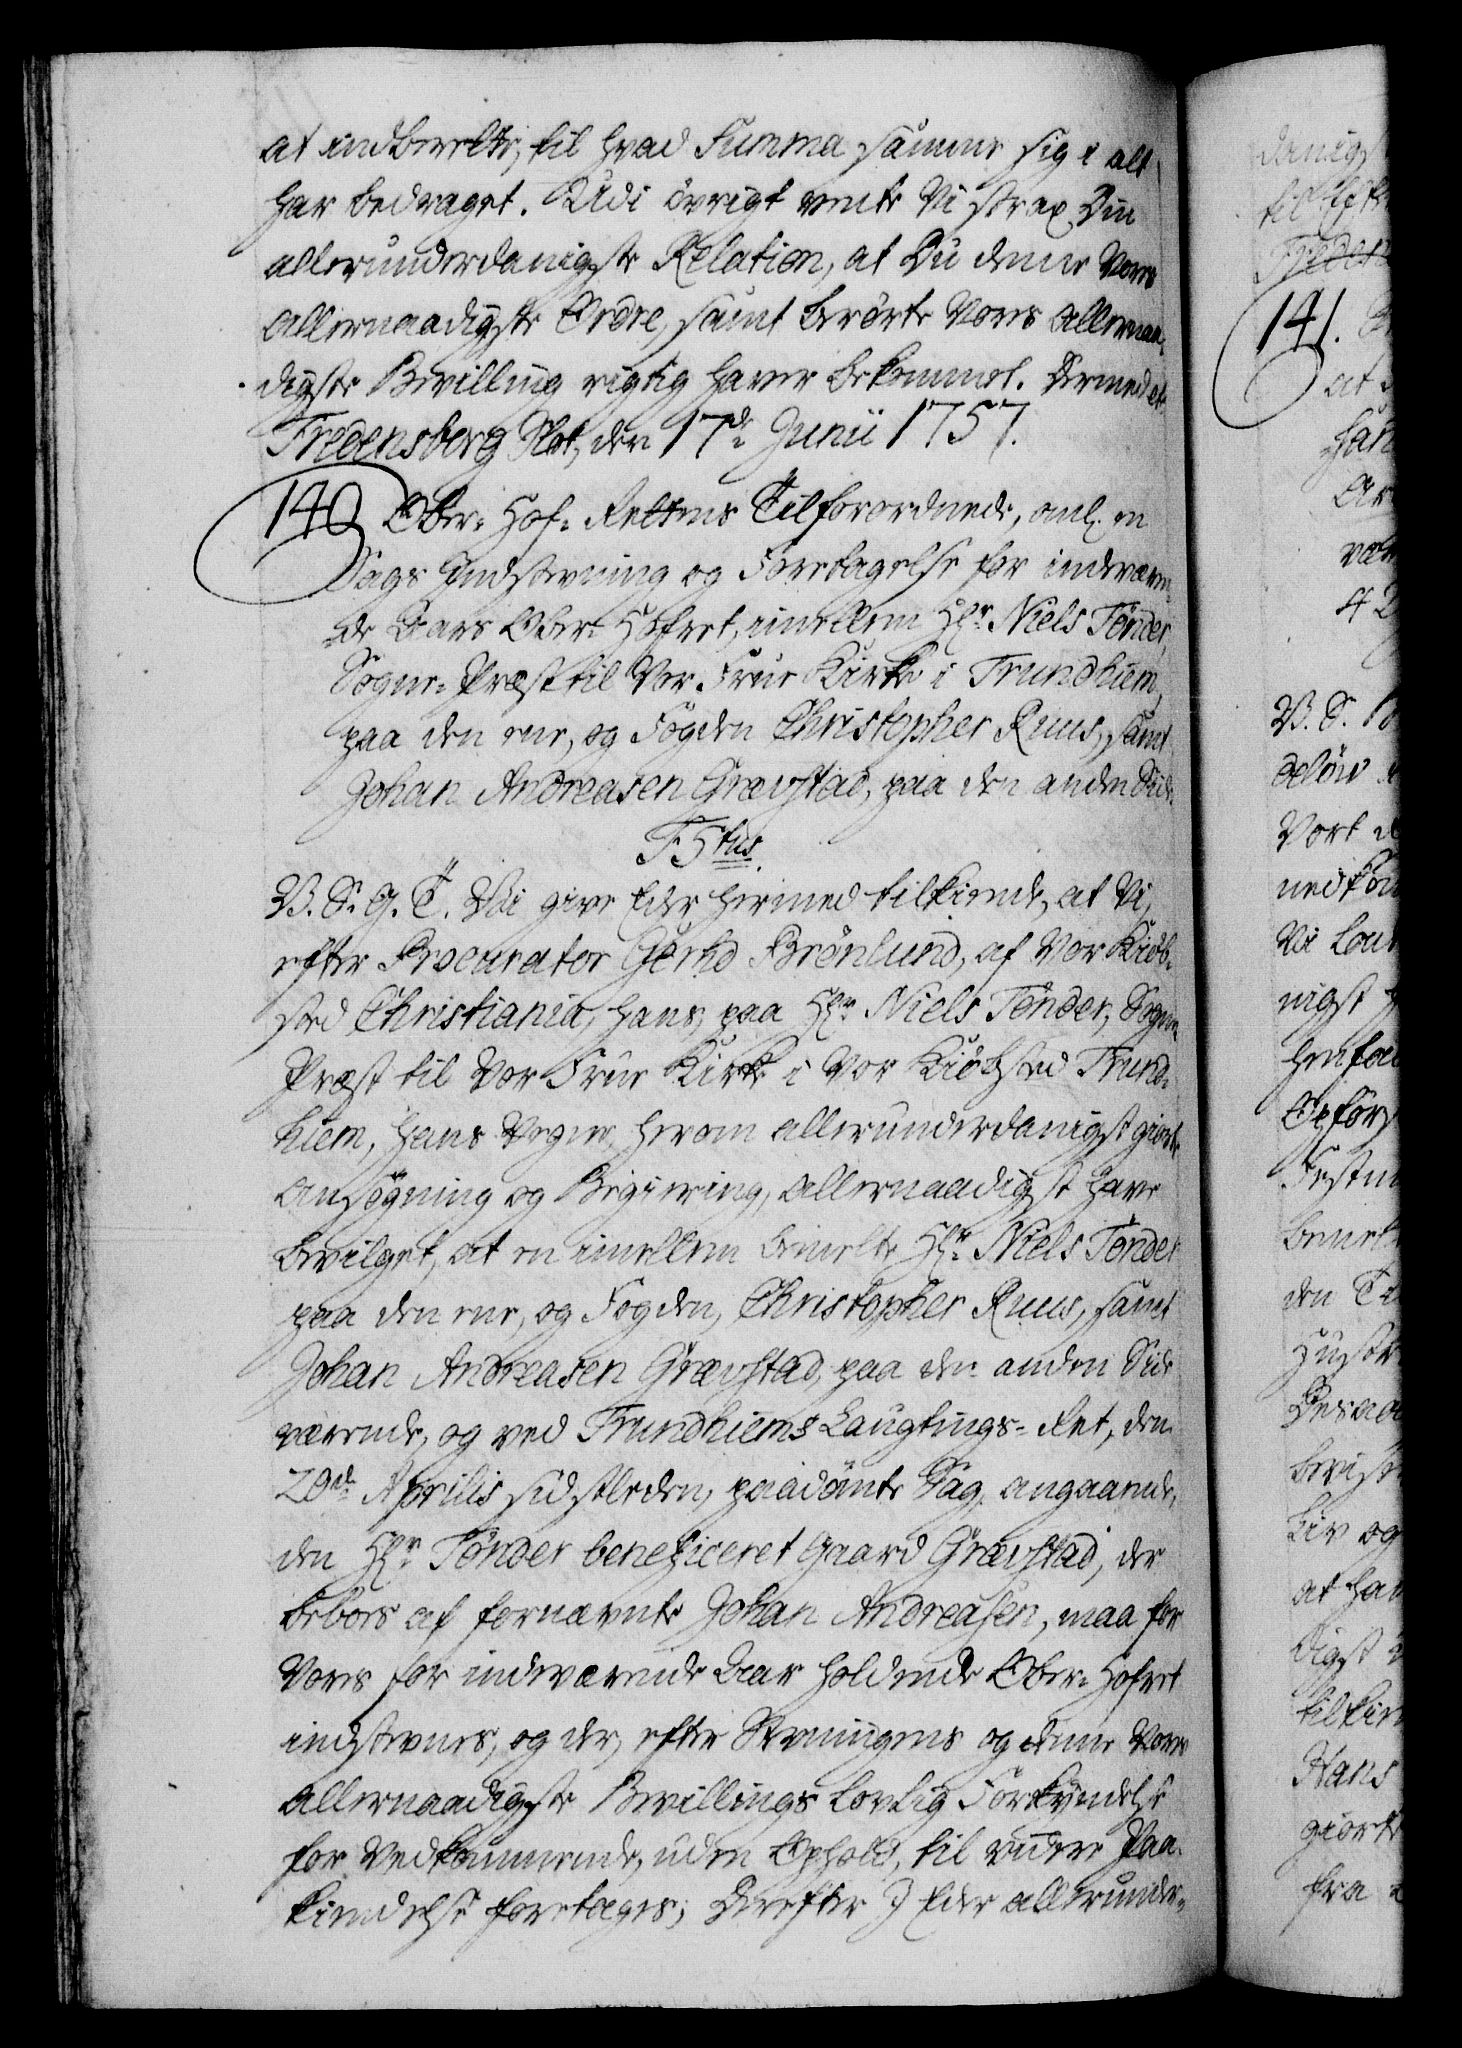 at indberette, til hvad Summa samme sig i alt
har bedraget. Udi övrigt vente Vi strax Din
allerunderdanigste Relation, at Du denne Vores
allernaadigste Ordre, samt berörte Vores Allernaa-
digste Bevilling rigtig haver bekommet. Dermed etc.
Fredensberg Slot, den 17de Junii 1757.
140 Ober-Hof-Rettens Tilforordnede, anl. en
Sags Indstevning og Foretagelse for indværen-
de Aars Ober-Hofret, imellem Hr. Niels Tönder,
Sogne-Præst til Vor Frue Kirke i Trundhiem,
paa den ene, og Fogden Christopher Ruus, samt
Johan Andreasen Grævstad, paa den anden Side.
F 5tus.
V. S. G. T. Vi give Eder hermed tilkiende, at Vi,
efter Procurator Gerhd Brönlund, af Vor Kiöb-
sted Christiania, hans, paa Hr. Niels Tönder, Sogne-
Præst til Vor Frue Kirke i Vor Kiöbsted Trund-
hiem, hans Vegne, herom allerunderdanigst giorte
Ansögning og Begiering, allernaadigst have
bevilget, at en imellem bemelte Hr. Niels Tönder
paa den ene, og Fogden, Christopher Ruus, samt
Johan Andreasen Grævstad, paa den anden Side
værende, og ved Trundhiems Laugtings-Ret, den
20de Aprilis sidstleden, paadömte Sag, angaaende
den Hr. Tönder beneficeret Gaard Grævstad, der
beboes af fornævnte Johan Andreasen, maa for
Vores for indeværende Aar holdende Ober-Hofret
indstevnes, og der, efter Stevningens og denne Vores
allernaadigste Bevillings lovlig Forkyndelse
for Vedkommende, uden Ophold, til videre Paa-
kiendelse foretages; Derefter I Eder allerunder-
141.